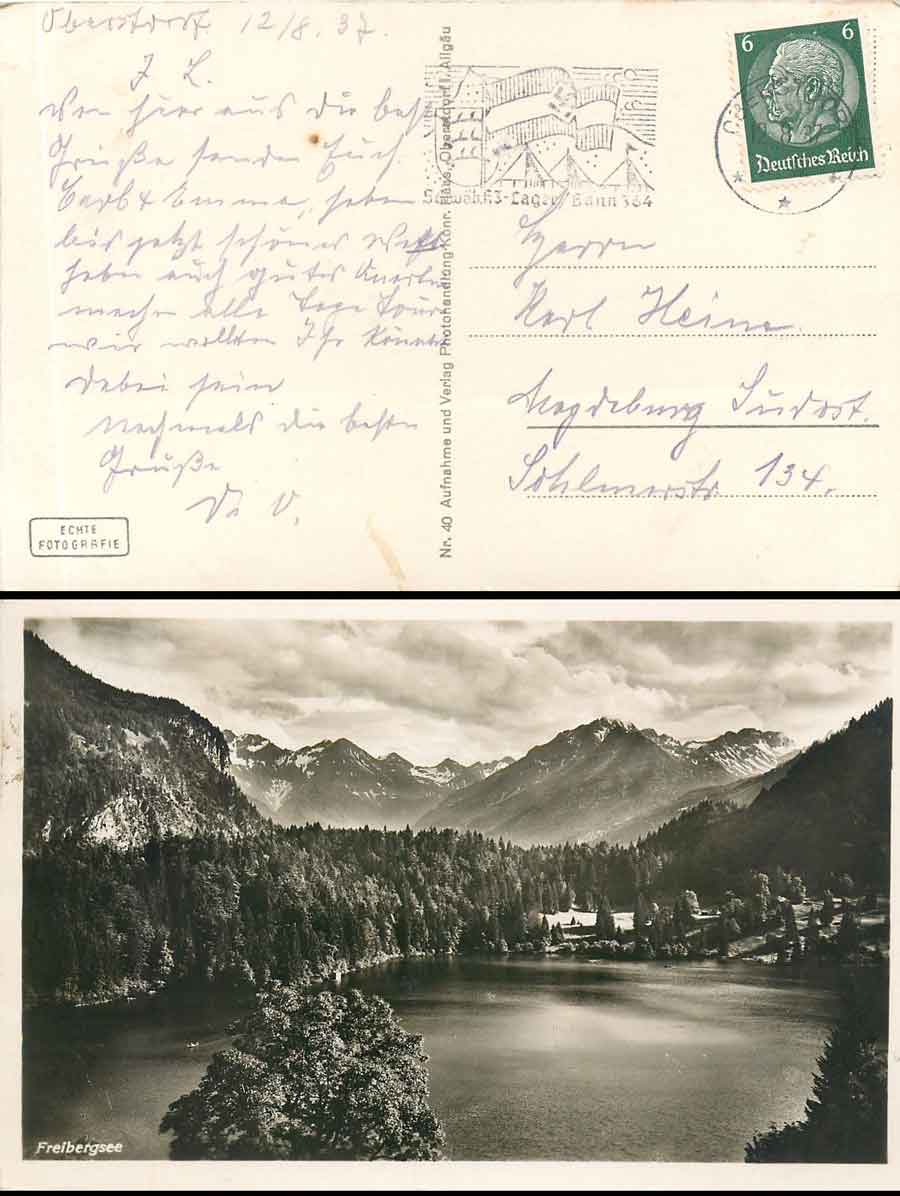 Oberstdorf 12/8. 37.
I L.
Von hier aus die besten
Grüße senden Euch
& Emma, haben
bis jetzt schönes
haben auch gutes
machen alle Tage
wir wollten Ihr könnte
Dabei sein
Nochmals die besten
Grüße
D. O.
ECHTE
FOTOGRAFIE
Nr. 40 Aufnahme und Verlag Photohandlung Konr. Oberstdorf i. Allgäu
Schwäb. HJ-Lager Bann 364
6 6
Deutsches Reich
Herrn
Karl Heine
Magdeburg Südost.
134.
Freibergsee